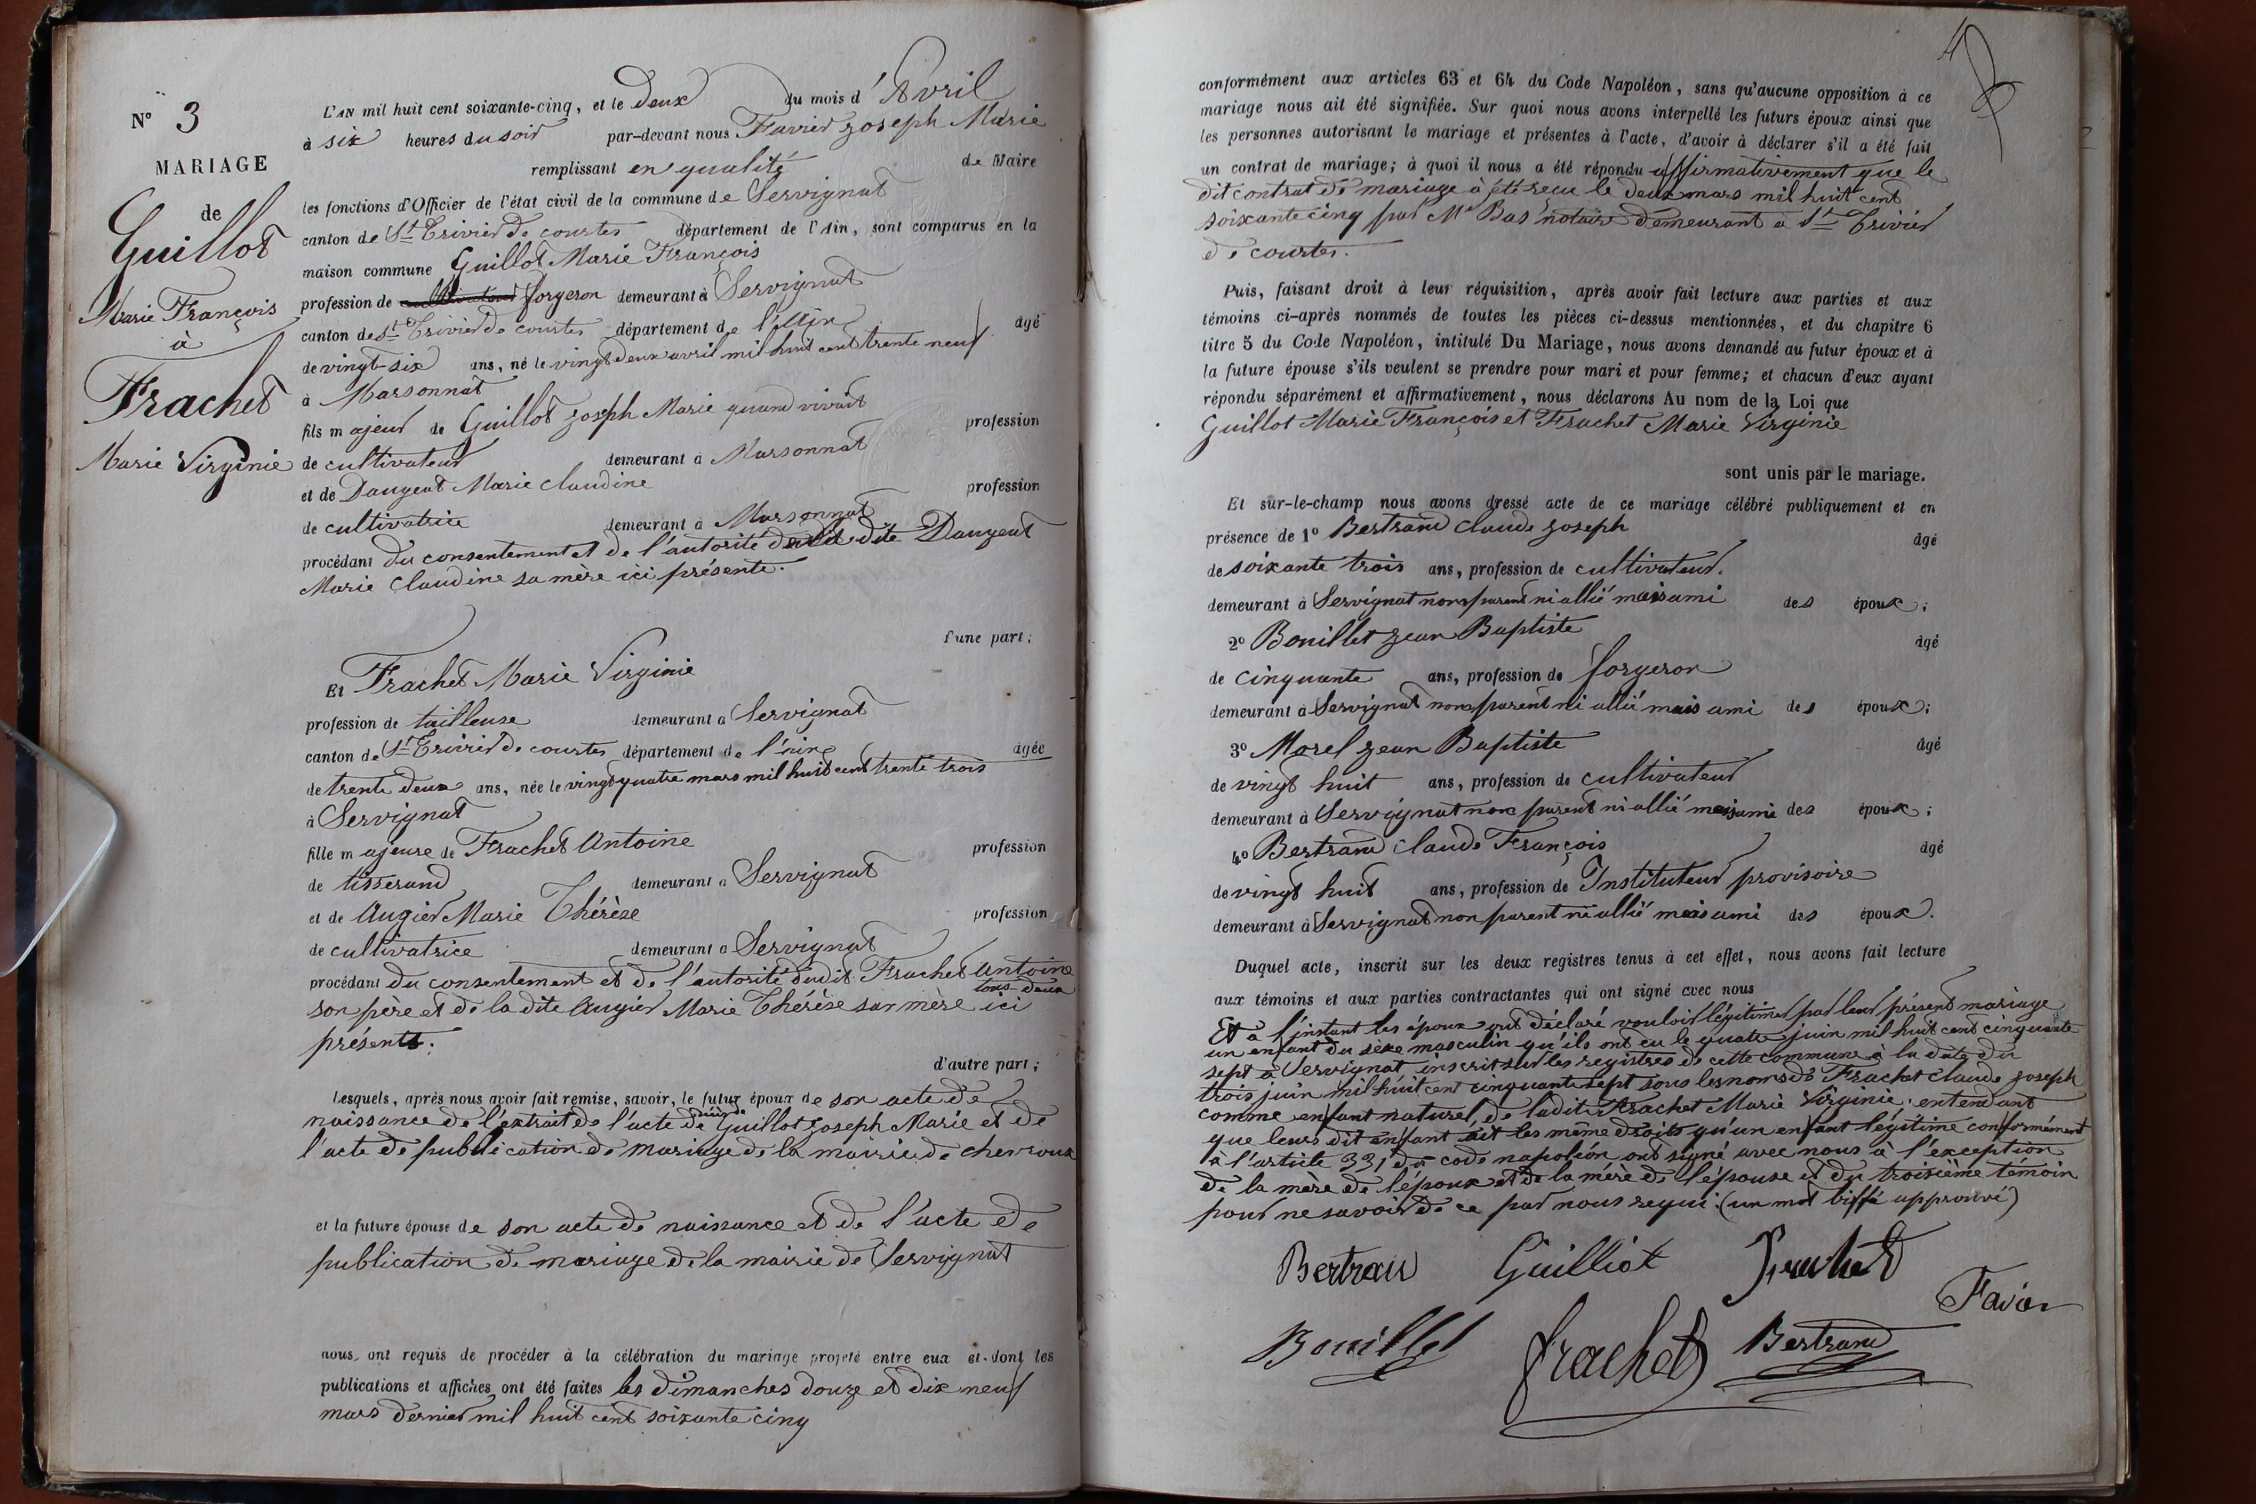 N° 3
MARIAGE
de
Guillot
Marie François
à
Frachet
Marie Virginie
L'AN mil huit cent soixante-cinq, et le deux du mois d'Avril
à six heures du soir par-devant nous Favier Joseph Marie
remplissant en qualité de Maire
les fonctions d'Officier de l'état civil de la commune de Servignat
canton de St Trivier de courtes département de l'Ain, sont comparus en la
maison commune Guillot Marie François
profession de cultivateur forgeron demeurant à Servignat
canton de St Trivier de courtes département de l'Ain âgé
de vingt-six ans, né le vingt deux avril mil huit cent trente neuf
à Marsonnat
fils majeur de Guillot Joseph Marie quand vivait profession
de cultivateur demeurant à Marsonnat
et de Dangeat Marie Claudine profession
de cultivatrice demeurant à Marsonnat
procédant du consentement et de l'autorité de la dite Dangeat
Marie Claudine sa mère ici présente.
d'une part;
Et Frachet Marie Virginie
profession de tailleuse demeurant à Servignat
canton de St Trivier de courtes département de l'ain âgée
de trente deux ans, née le vingt quatre mars mil huit cent trente trois
à Servignat
fille majeure de Frachet Antoine profession
de tisserand demeurant à Servignat
et de Augier Marie Thérèse profession
de cultivatrice demeurant à Servignat
procédant du consentement et de l'autorité dudit Frachet Antoine
son père et de la dite Augier Marie Thérèse sa mère tous deux ici
présents.
d'autre part;
Lesquels, après nous avoir fait remise, savoir, le futur époux de son acte de
naissance de l'extrait de l'acte de décès de Guillot Joseph Marie et de
l'acte de publication de mariage de la mairie de chevroux
et la future épouse de son acte de naissance et de l'acte de
publication de mariage de la mairie de Servignat
nous ont requis de procéder à la célébration du mariage projeté entre eux et dont les
publications et affiches ont été faites les dimanches douze et dix neuf
mars dernier mil huit cent soixante cinq
4
conformément aux articles 63 et 64 du Code Napoléon, sans qu'aucune opposition à ce
mariage nous ait été signifiée. Sur quoi nous avons interpellé les futurs époux ainsi que
les personnes autorisant le mariage et présentes à l'acte, d'avoir à déclarer s'il a été fait
un contrat de mariage; à quoi il nous a été répondu affirmativement que le
dit contrat de mariage à été reçu le deux mars mil huit cent
soixante cinq par Me Bas notaire demeurant à St Trivier
de courtes.
Puis, faisant droit à leur réquisition, après avoir fait lecture aux parties et aux
témoins ci-après nommés de toutes les pièces ci-dessus mentionnées, et du chapitre 6
titre 5 du Code Napoléon, intitulé Du Mariage, nous avons demandé au futur époux et à
la future épouse s'ils veulent se prendre pour mari et pour femme; et chacun d'eux ayant
répondu séparément et affirmativement, nous déclarons Au nom de la Loi que
Guillot Marie François et Frachet Marie Virginie
sont unis par le mariage.
Et sur-le-champ nous avons dressé acte de ce mariage célébré publiquement et en
présence de 1° Bertrand Claude Joseph âgé
de soixante trois ans, profession de cultivateur.
demeurant à Servignat non parent ni allié mais ami des époux;
2° Bouillet Jean Baptiste âgé
de cinquante ans, profession de forgeron
demeurant à Servignat non parent ni allié mais ami des époux;
3° Morel Jean Baptiste âgé
de vingt huit ans, profession de cultivateur
demeurant à Servignat non parent ni allié mais ami des époux;
4° Bertrand Claude François âgé
de vingt huit ans, profession de Instituteur provisoire
demeurant à Servignat non parent ni allié mais ami des époux.
Duquel acte, inscrit sur les deux registres tenus à cet effet, nous avons fait lecture
aux témoins et aux parties contractantes qui ont signé avec nous
Et à l'instant les époux ont déclaré vouloir légitimer par leur présent mariage
un enfant du sèxe masculin qu'ils ont eu le quatre juin mil huit cent cinquante
sept à Servignat inscrit sur les registres de cette commune à la date du
trois juin mil huit cent cinquante sept sous les noms de Frachet Claude Joseph
comme enfant naturel de ladite Frachet Marie Virginie. entendant
que leur dit enfant ait les même droits qu'un enfant légitime conformément
à l'article 331 du code napoléon ont signé avec nous à l'exception
de la mère de l'époux et de la mère de l'épouse et du troisième témoin
pour ne savoir de ce par nous requi. (un mot biffé approuvé)
Bertran Guilliot Frachet
Favier
Bouillet frachet Bertrand